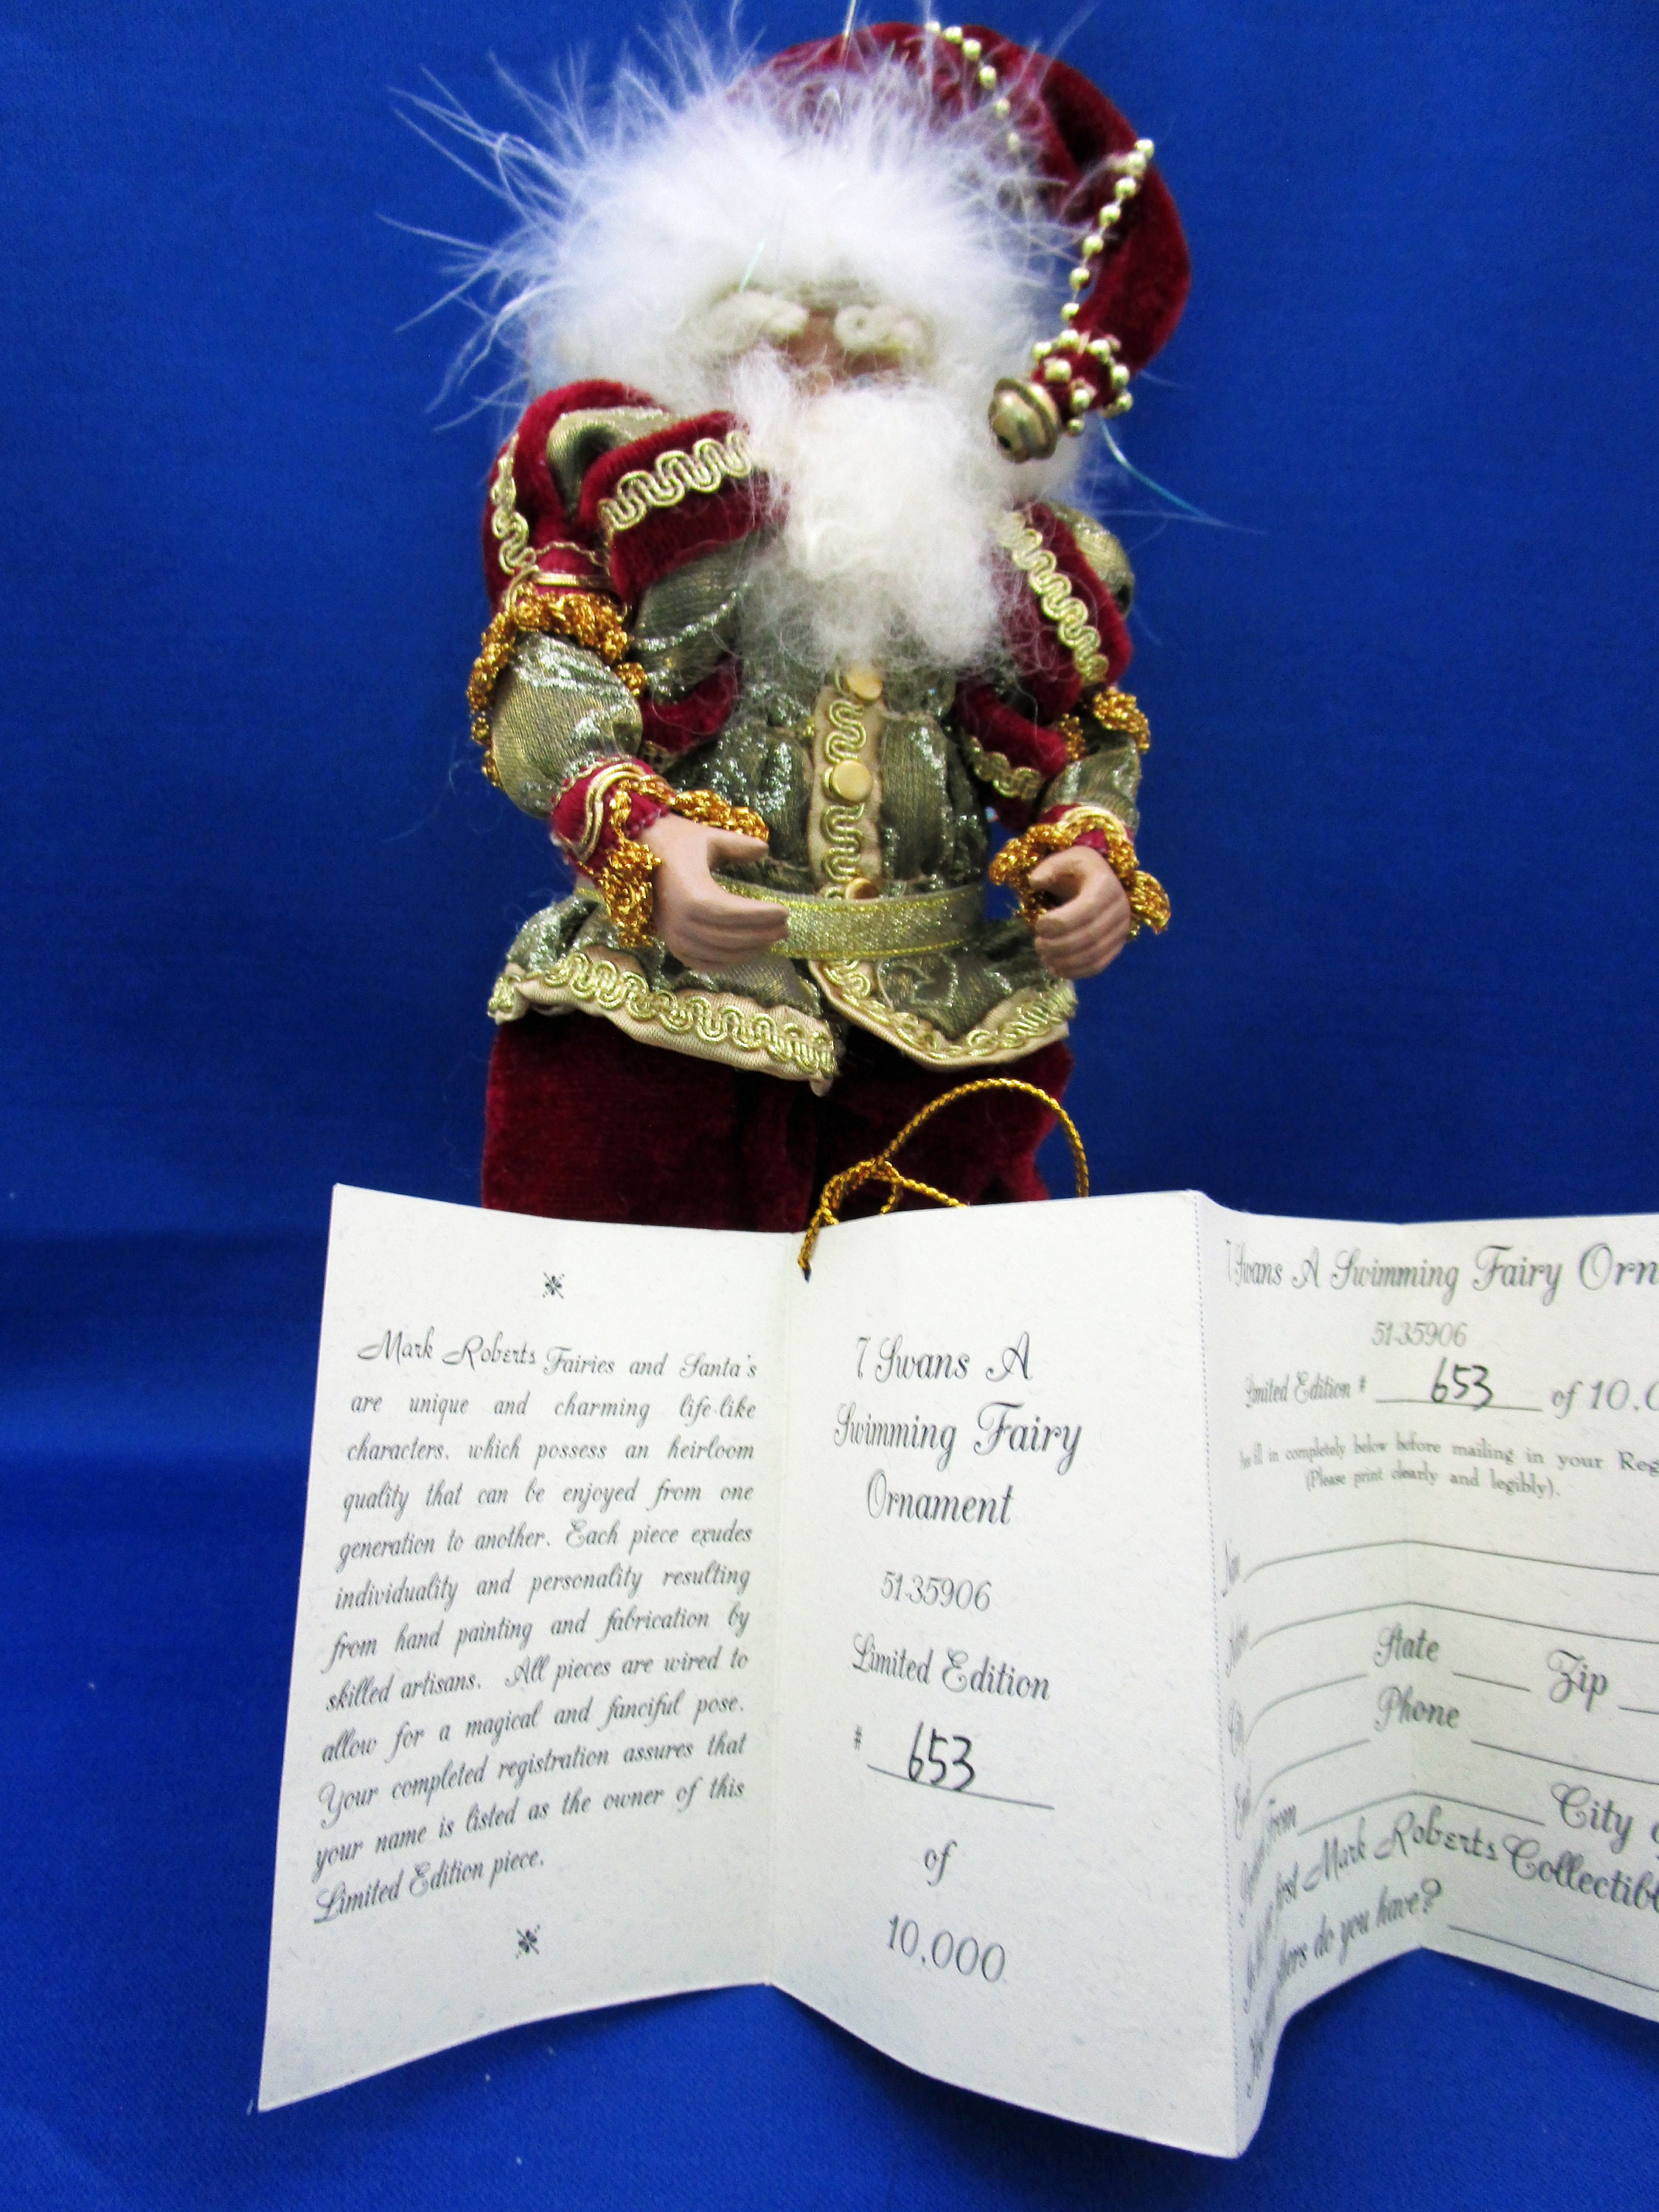 Mark Roberts Fairies and Santa's
are unique and charming life-like
characters, which possess an heirloom
quality that can be enjoyed from one
generation to another. Each piece exudes
individuality and personality resulting
from hand painting and fabrication by
skilled artisans. All pieces are wired to
allow for a magical and fanciful pose.
Your completed registration assures that
your name is listed as the owner of this
Limited Edition piece.
7 Swans A
Swimming Fairy
Ornament
51-35906
Limited Edition
# 653
of
10,000
7 Swans A Swimming Fairy Orn
51-35906
Limited Edition # 653 of 10,0
fill in completely below before mailing in your Reg
(Please print clearly and legibly).
State Zip
Phone
From City
first Mark Roberts Collectibl
do you have?